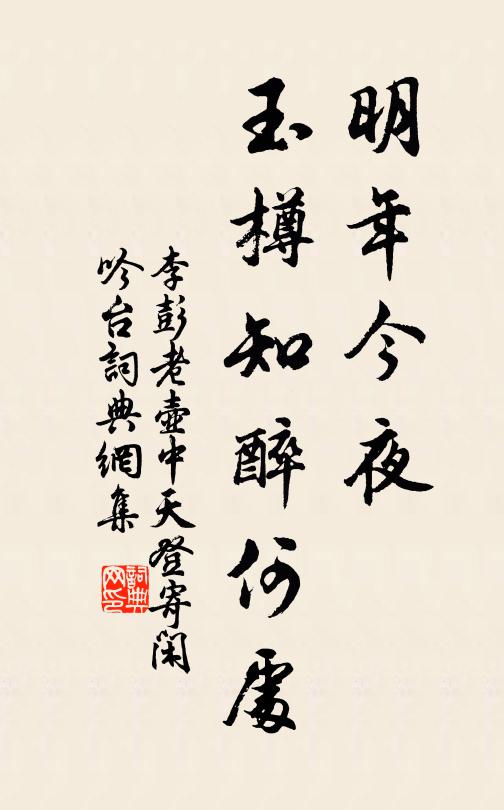 明年今夜
玉樽知醉何處
李彭老壺中天登寄閑
吟台詞典網集
詞典
网印